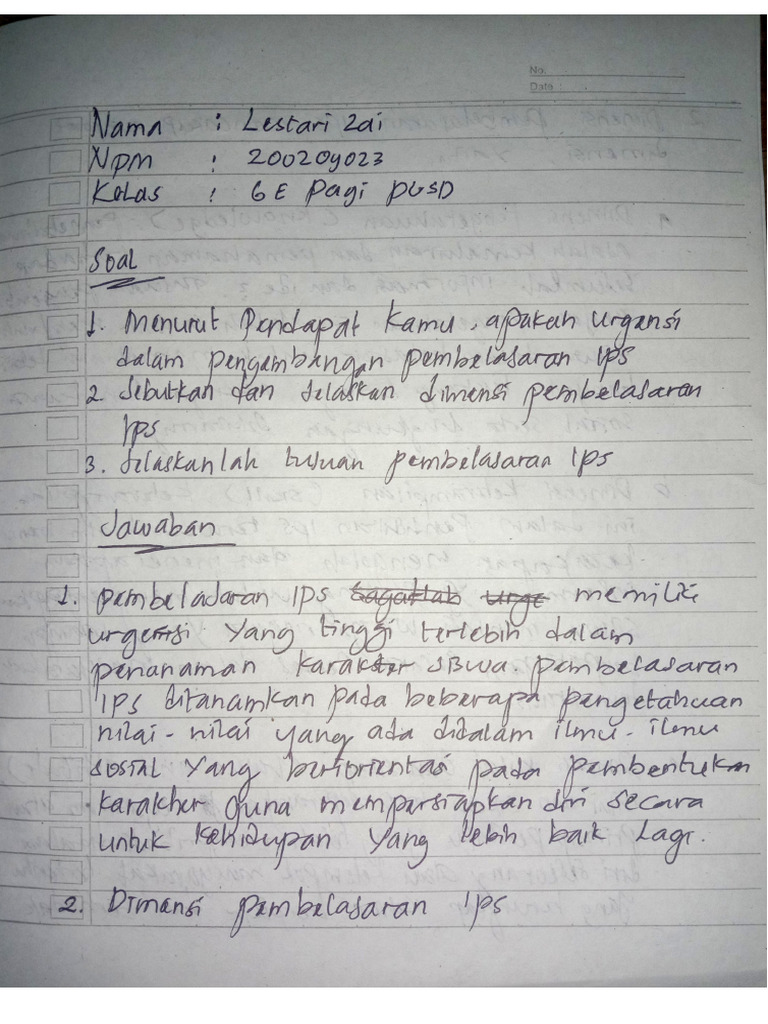 No.
Date :
Nama : Lestari Zai
Npm : 200209023
Kelas : 6E Pagi PGSD
Soal
1. Menurut Pendapat Kamu, apakah urgensi
dalam pengembangan pembelasaran IPS
2. Sebutkan dan Jelaskan dimensi pembelasaran
IPS
3. Jelaskanlah tujuan pembelasaran IPS
Jawaban
1. pembeladaran IPS memiliki
urgensi yang tinggi terlebih dalam
penanaman karakter siswa. pembelasaran
IPS ditanamkan pada beberapa pengetahuan
nilai-nilai yang ada didalam ilmu-ilmu
sosial yang beriorientasi pada pembentukan
karakher guna mempersiapkan diri secara
untuk kehidupan yang lebih baik lagi.
2. Dimensi pembelasaran IPS